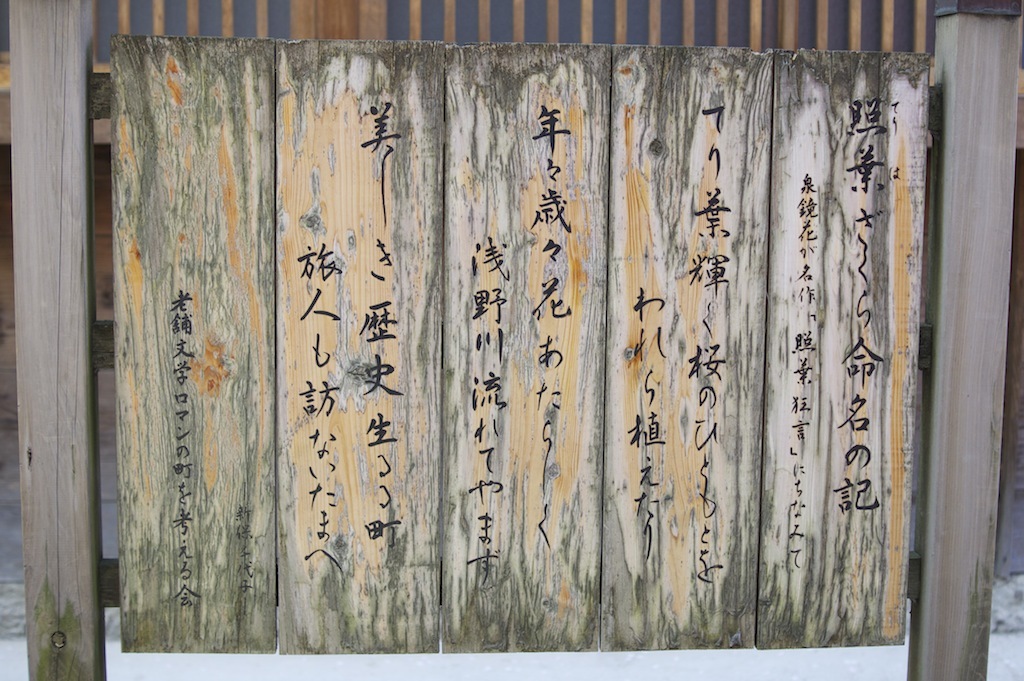 照葉ざくら命名の記
てりは
泉鏡花が名作「照葉狂言」にちなみて
てり葉輝く桜のひともとを
われら植えたり
年々歳々花あたらしく
浅野川流れてやまず
美しき歴史生るる町
旅人も訪ないたまへ
老舗文学ロマンの町を考える会